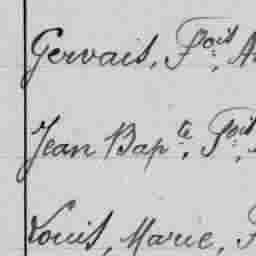 Gervais, Fois,
Jean Bapte, Fois,
Louis, Marie,